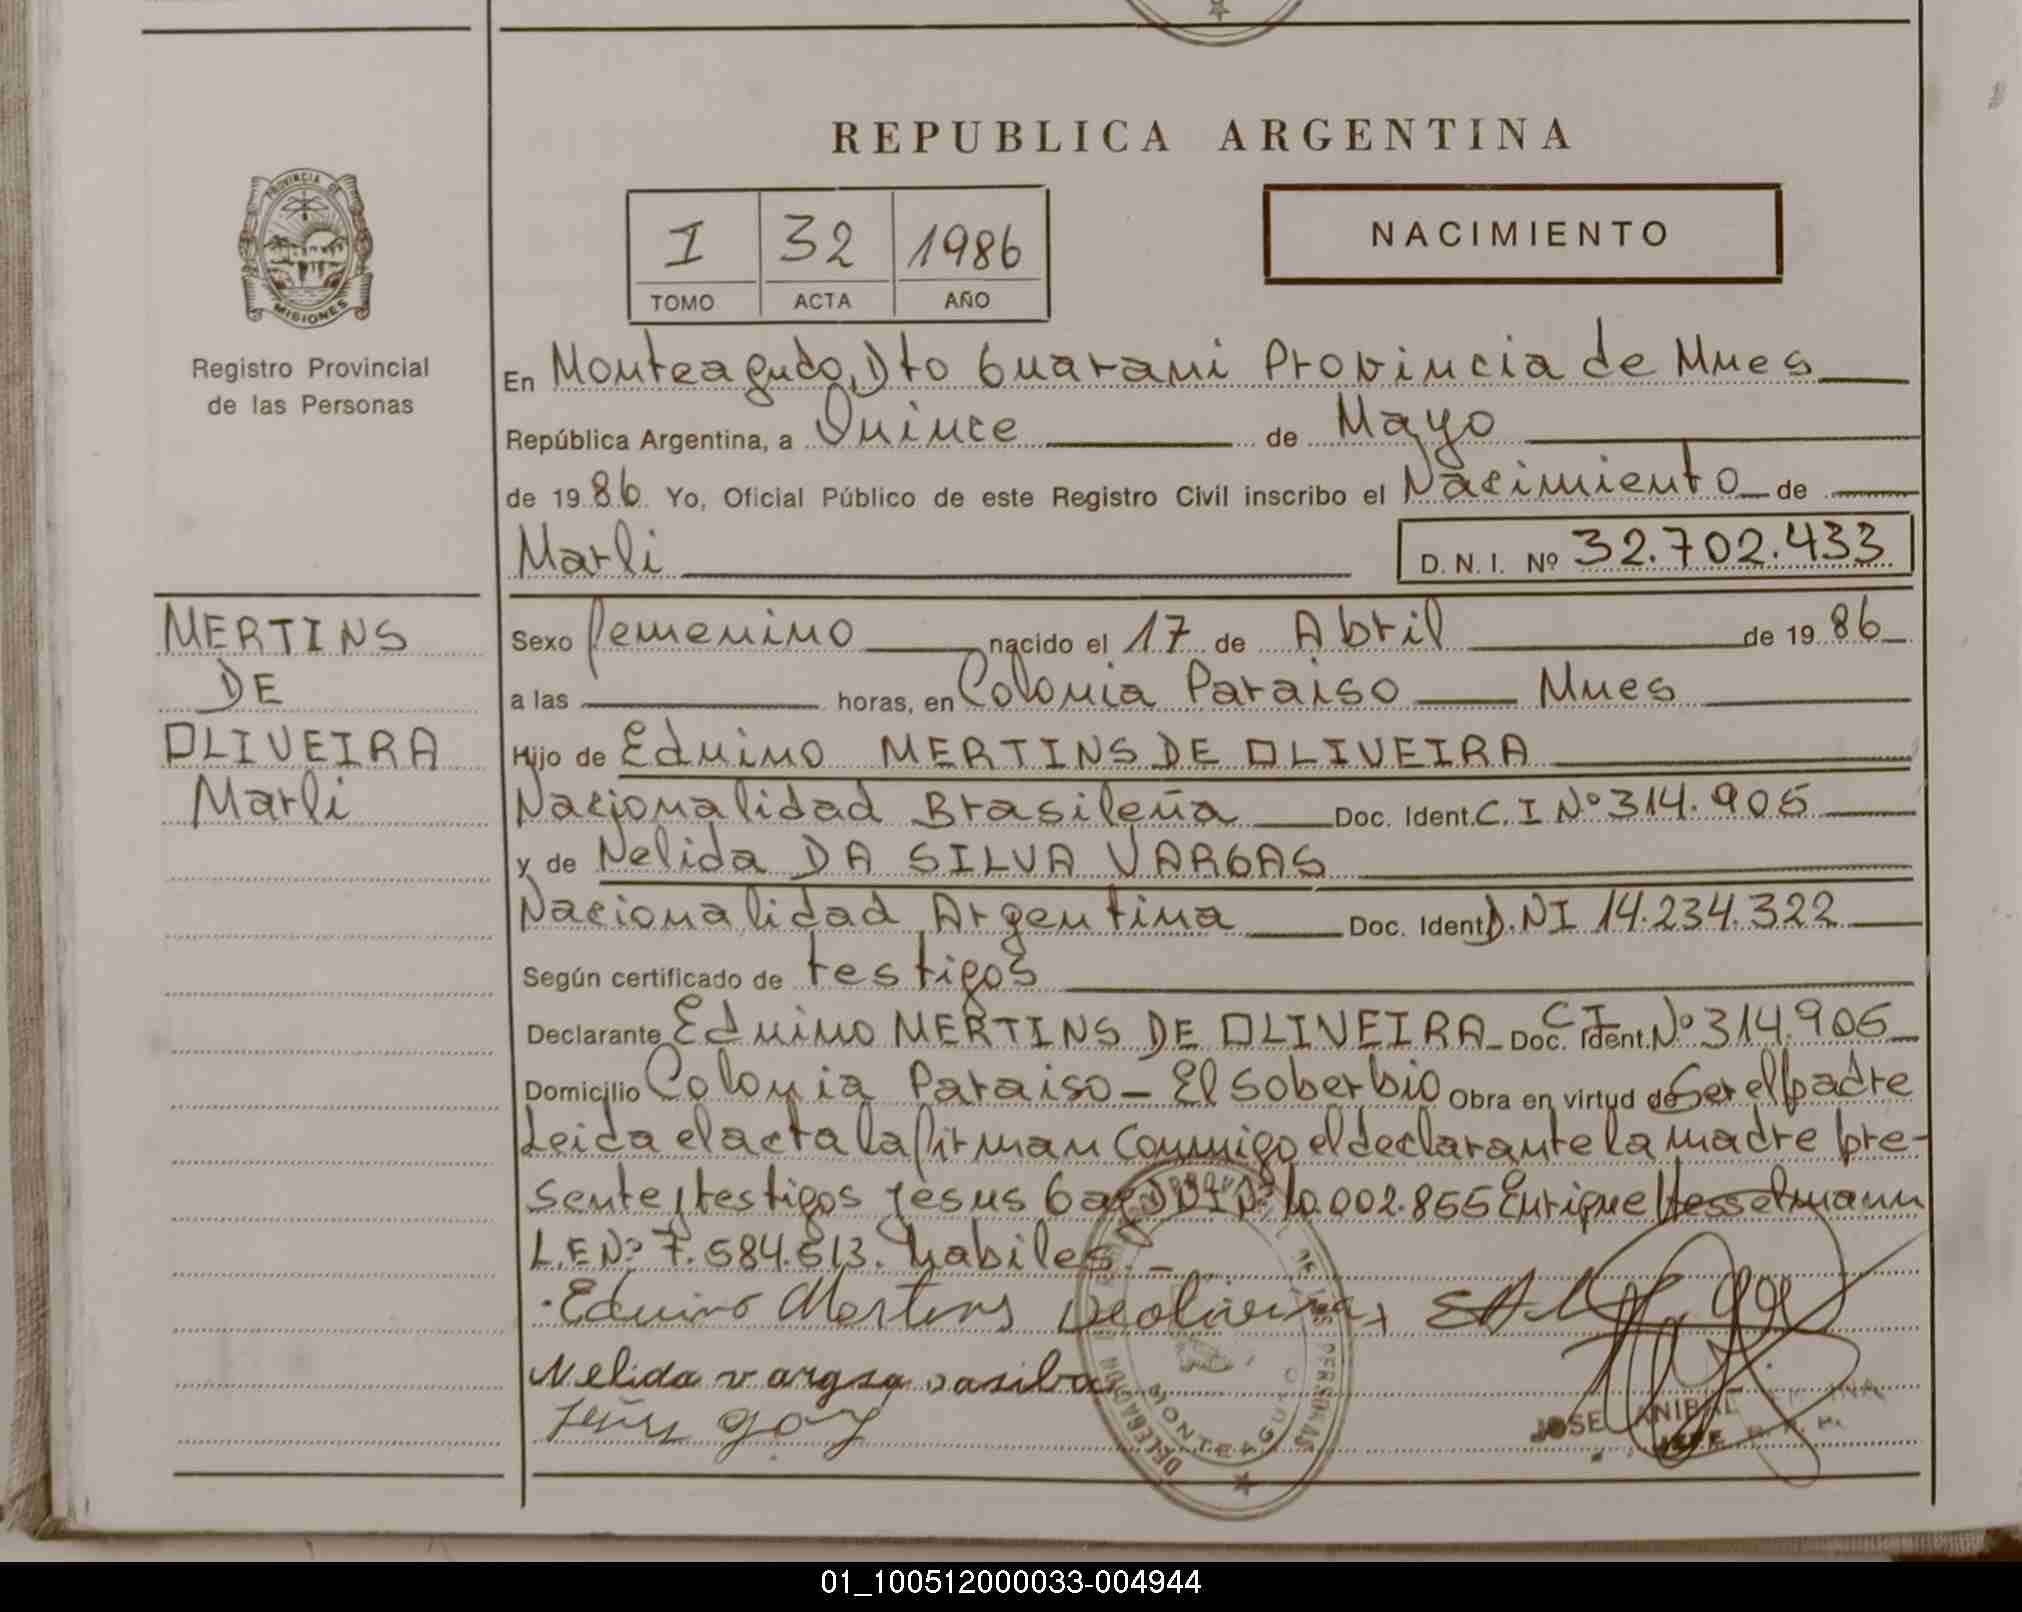 REPUBLICA ARGENTINA
PROVINCIA DE
MISIONES
Registro Provincial
de las Personas
I 32 1986
TOMO ACTA AÑO
NACIMIENTO
En Monteagudo, Dto Guarani Provincia de Mnes
República Argentina, a Quince de Mayo
de 19 86 Yo, Oficial Público de este Registro Civil inscribo el Nacimiento de
Marli D. N. I. Nº 32.702.433
MERTINS
DE
OLIVEIRA
Marli
Sexo femenino nacido el 17 de Abril de 19 86
a las horas, en Colonia Paraiso Mnes
Hijo de Eduino MERTINS DE OLIVEIRA
Nacionalidad Brasileña Doc. Ident. C. I Nº 314.905
y de Nelida DA SILVA VARGAS
Nacionalidad Argentina Doc. Ident D.NI 14.234.322
Según certificado de testigos
Declarante Eduino MERTINS DE OLIVEIRA Doc. Ident. CI Nº 314.905
Domicilio Colonia Paraiso - El Soberbio Obra en virtud de Ser el padre
Leida el acta la firman Conmigo el declarante la madre pre-
sente y testigos Jesus DNI Nº 10.002.855 Enrique Hesselmann
L.E Nº 7.584.513. habiles. -
Eduino Mertins Deoliveira
Nelida vargsa dasilva
DELEGACION
DE LAS PERSONAS
MONTEAGUDO
JOSE ANIBAL
JEFE
01_100512000033-004944